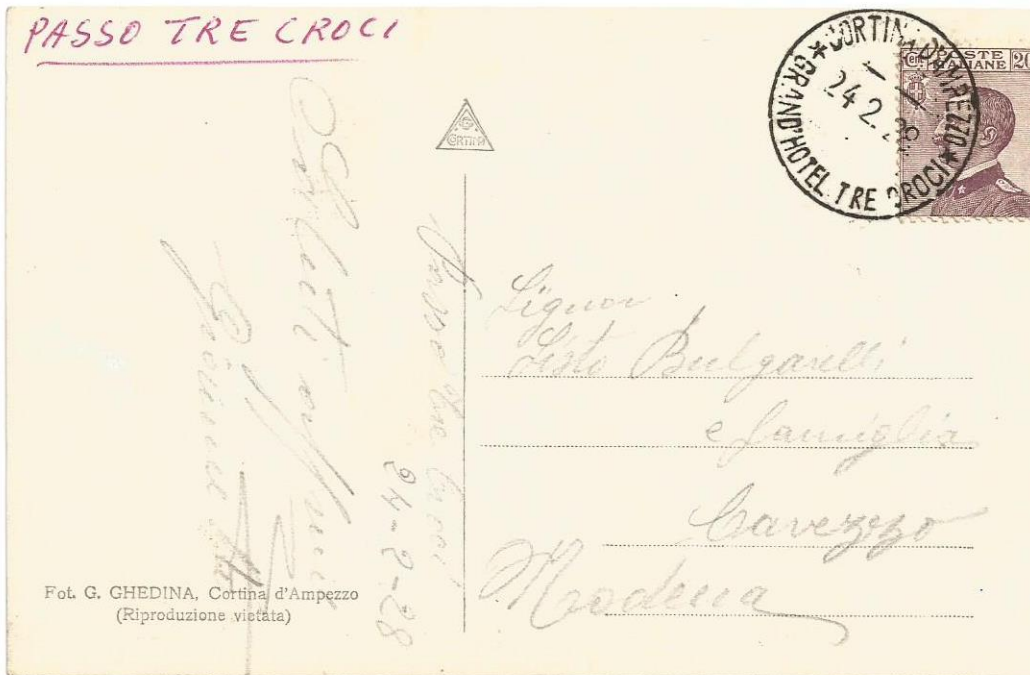 PASSO TRE CROCI
G
CORTINA
★ CORTINA D'AMPEZZO ★
GRAND'HOTEL TRE CROCI
24.2.28
POSTE
Cent. ITALIANE 20
Passo Tre Croci
24-2-28
Saluti
Signor
Sisto Bulgarelli
e famiglia
Cavezzo
Modena
Fot. G. GHEDINA, Cortina d'Ampezzo
(Riproduzione vietata)